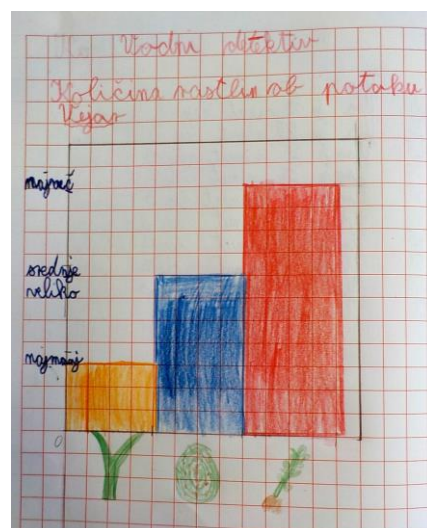 Vodni detektiv
Količina rastlin ob potoku
Kejar
največ
srednje
veliko
najmanj
0